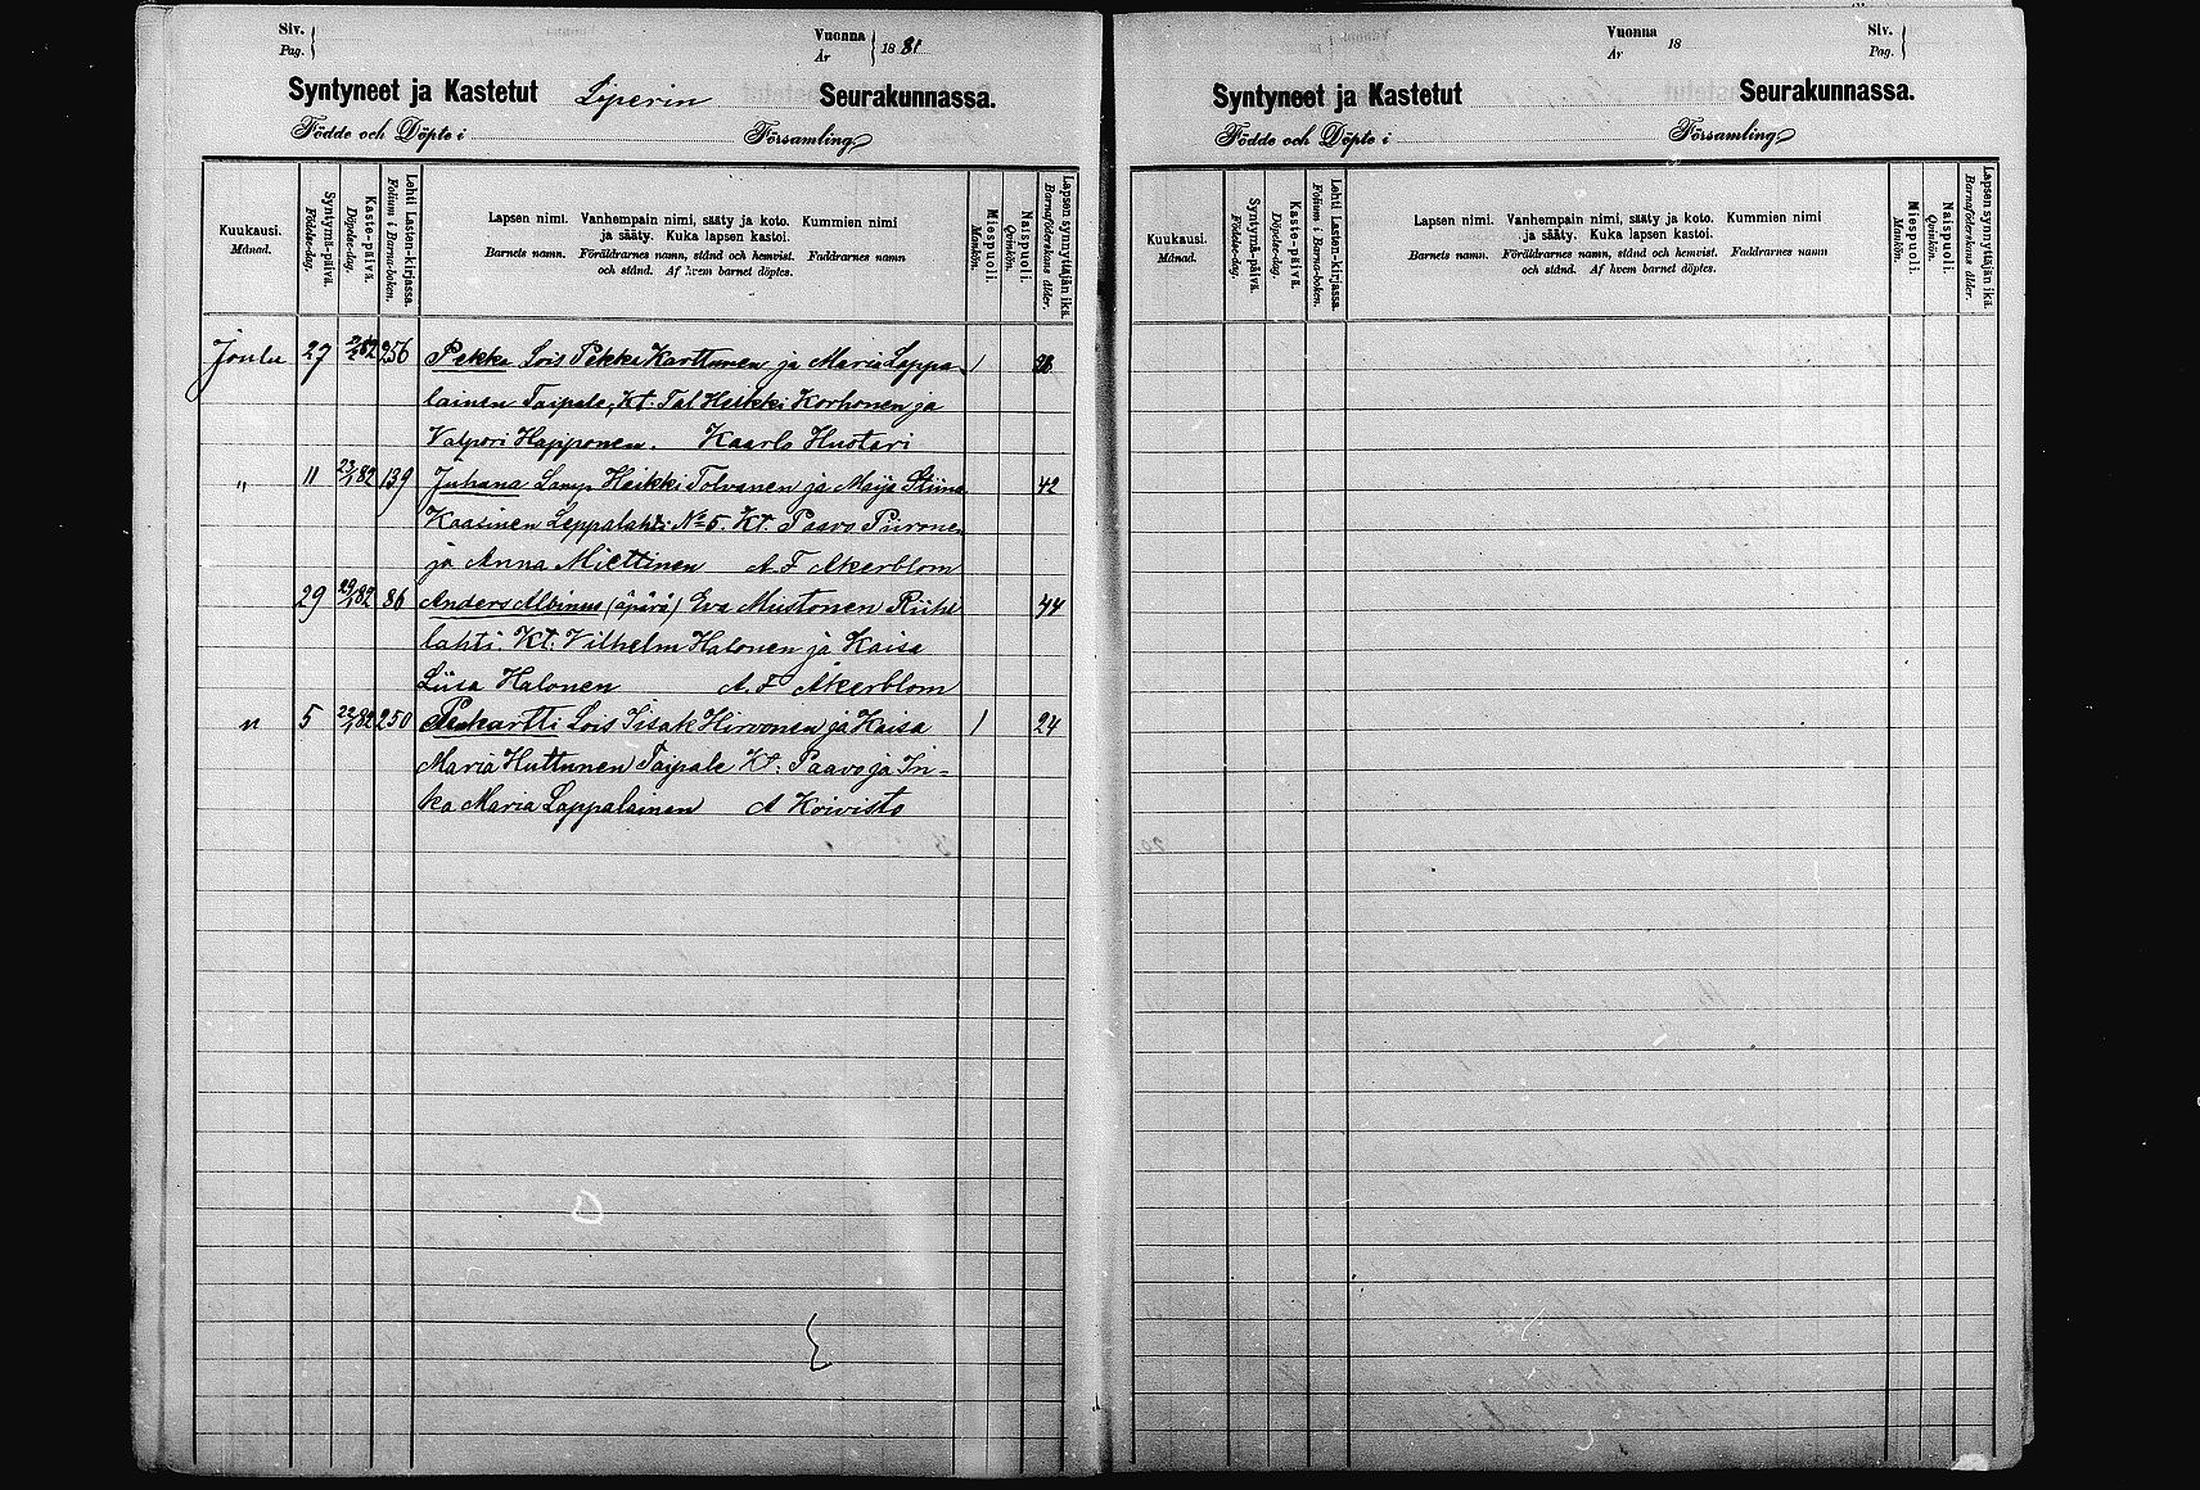 Siv.
Pag.
Vuonna
År
1881
Syntyneet ja Kastetut Liperin Seurakunnassa.
Födde och Döpte i Församling
Kuukausi.
Månad.
Syntymä-päivä.
Födelse-dag.
Kaste-päivä.
Döpelse-dag.
Lehti Lasten-kirjassa.
Folium i Barna-boken.
Lapsen nimi. Vanhempain nimi, sääty ja koto. Kummien nimi
ja sääty. Kuka lapsen kastoi.
Barnets namn. Föräldrarnes namn, stånd och hemvist. Faddrarnes namn
och stånd. Af hvem barnet döptes.
Miespuoli.
Mankön.
Naispuoli.
Qvinkön.
Lapsen synnyttäjän ikä.
Barnaföderskans ålder.
Joulu 27 256 Pekka Lois Pekka Karttunen ja Maria Lappa- /
lainen Taipale, Kt. Tal Heikki Korhonen ja
Valpori Happonen. Kaarlo Huotari
" 11 23/1 82 139 Juhana Lamp. Heikki Tolvanen ja Maija Stiina 42
Kaasinen Leppälahti No 5. Kt. Paavo Piironen
ja Anna Miettinen A. F Akerblom
29 29/1 82 86 Anders Albinus (äpärä) Eva Mustonen Riihi 44
lahti. Kt: Vilhelm Halonen ja Kaisa
Liisa Halonen A. F Akerblom
" 5 22/1 82 250 Lois Iisak Hirvonen ja Kaisa / 24
Maria Huttunen Taipale Kt: Paavo ja In-
ka Maria Lappalainen A Koivisto
Vuonna
År
18
Siv.
Pag.
Syntyneet ja Kastetut Seurakunnassa.
Födde och Döpte i Församling
Kuukausi.
Månad.
Syntymä-päivä.
Födelse-dag.
Kaste-päivä.
Döpelse-dag.
Lehti Lasten-kirjassa.
Folium i Barna-boken.
Lapsen nimi. Vanhempain nimi, sääty ja koto. Kummien nimi
ja sääty. Kuka lapsen kastoi.
Barnets namn. Föräldrarnes namn, stånd och hemvist. Faddrarnes namn
och stånd. Af hvem barnet döptes.
Miespuoli.
Mankön.
Naispuoli.
Qvinkön.
Lapsen synnyttäjän ikä.
Barnaföderskans ålder.